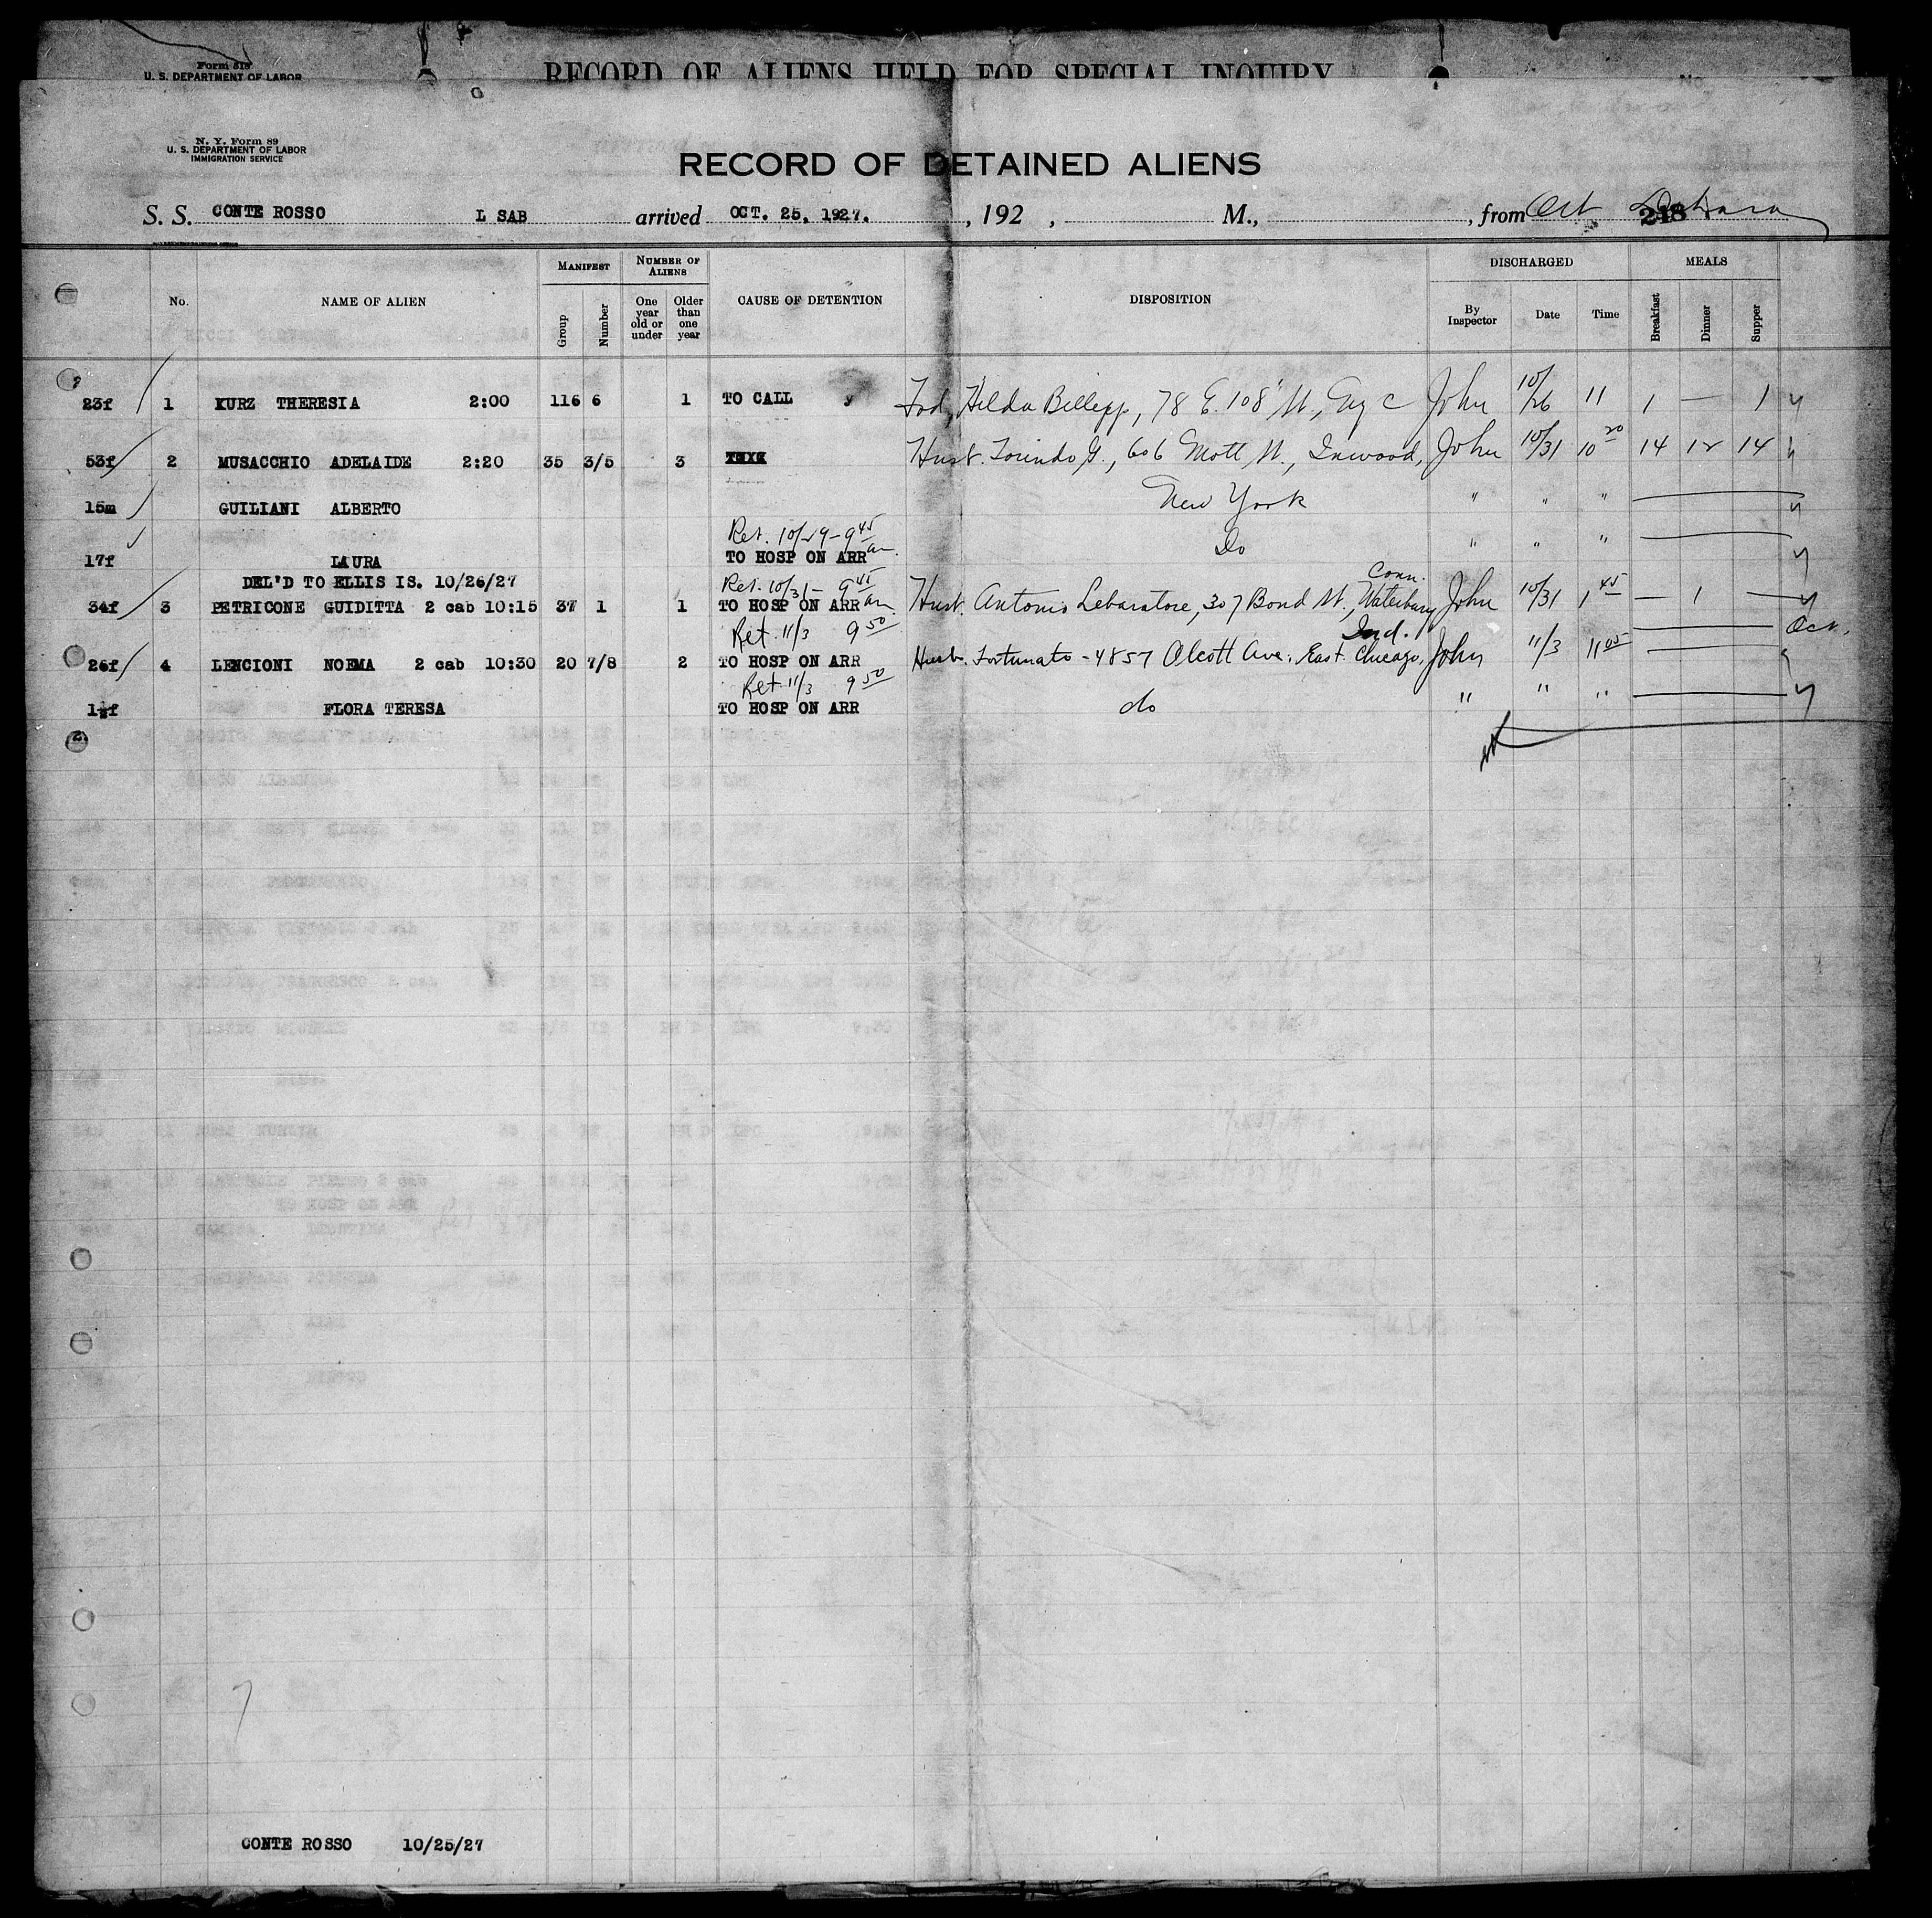 Form 518
U. S. DEPARTMENT OF LABOR
RECORD OF ALIENS HELD FOR SPECIAL INQUIRY
No.
N. Y. Form 89
U. S. DEPARTMENT OF LABOR
IMMIGRATION SERVICE
RECORD OF DETAINED ALIENS
S. S. CONTE ROSSO L SAB arrived OCT. 25, 1927. , 192 , M., , from 218
No. NAME OF ALIEN MANIFEST Group Number NUMBER OF ALIENS One year old or under Older than one year CAUSE OF DETENTION DISPOSITION DISCHARGED By Inspector Date Time MEALS Breakfast Dinner Supper
23f 1 KURZ THERESIA 2:00 116 6 1 TO CALL Hilda 78 E. 108 St., NYC John 10/26 11 1 — 1
53f 2 MUSACCHIO ADELAIDE 2:20 35 3/5 3 Husb. G., 606 Mott St., Inwood, John 10/31 10 20 14 12 14
15m GUILIANI ALBERTO New York " " "
Ret. 10/29 - 9 45 am.
17f LAURA TO HOSP ON ARR Do " " "
DEL'D TO ELLIS IS. 10/26/27 Ret. 10/31 - 9 45 am Conn.
34f 3 PETRICONE GUIDITTA 2 cab 10:15 37 1 1 TO HOSP ON ARR Husb. Antonio Lebaratore, 307 Bond St., Waterbury John 10/31 1 45 — 1 —
Ret. 11/3 9 50 Ind.
26f 4 LENCIONI NOEMA 2 cab 10:30 20 7/8 2 TO HOSP ON ARR Husb. Fortunato - 4857 Alcott Ave. East Chicago, John 11/3 11 05
Ret. 11/3 9 50
FLORA TERESA TO HOSP ON ARR do " " "
CONTE ROSSO 10/25/27